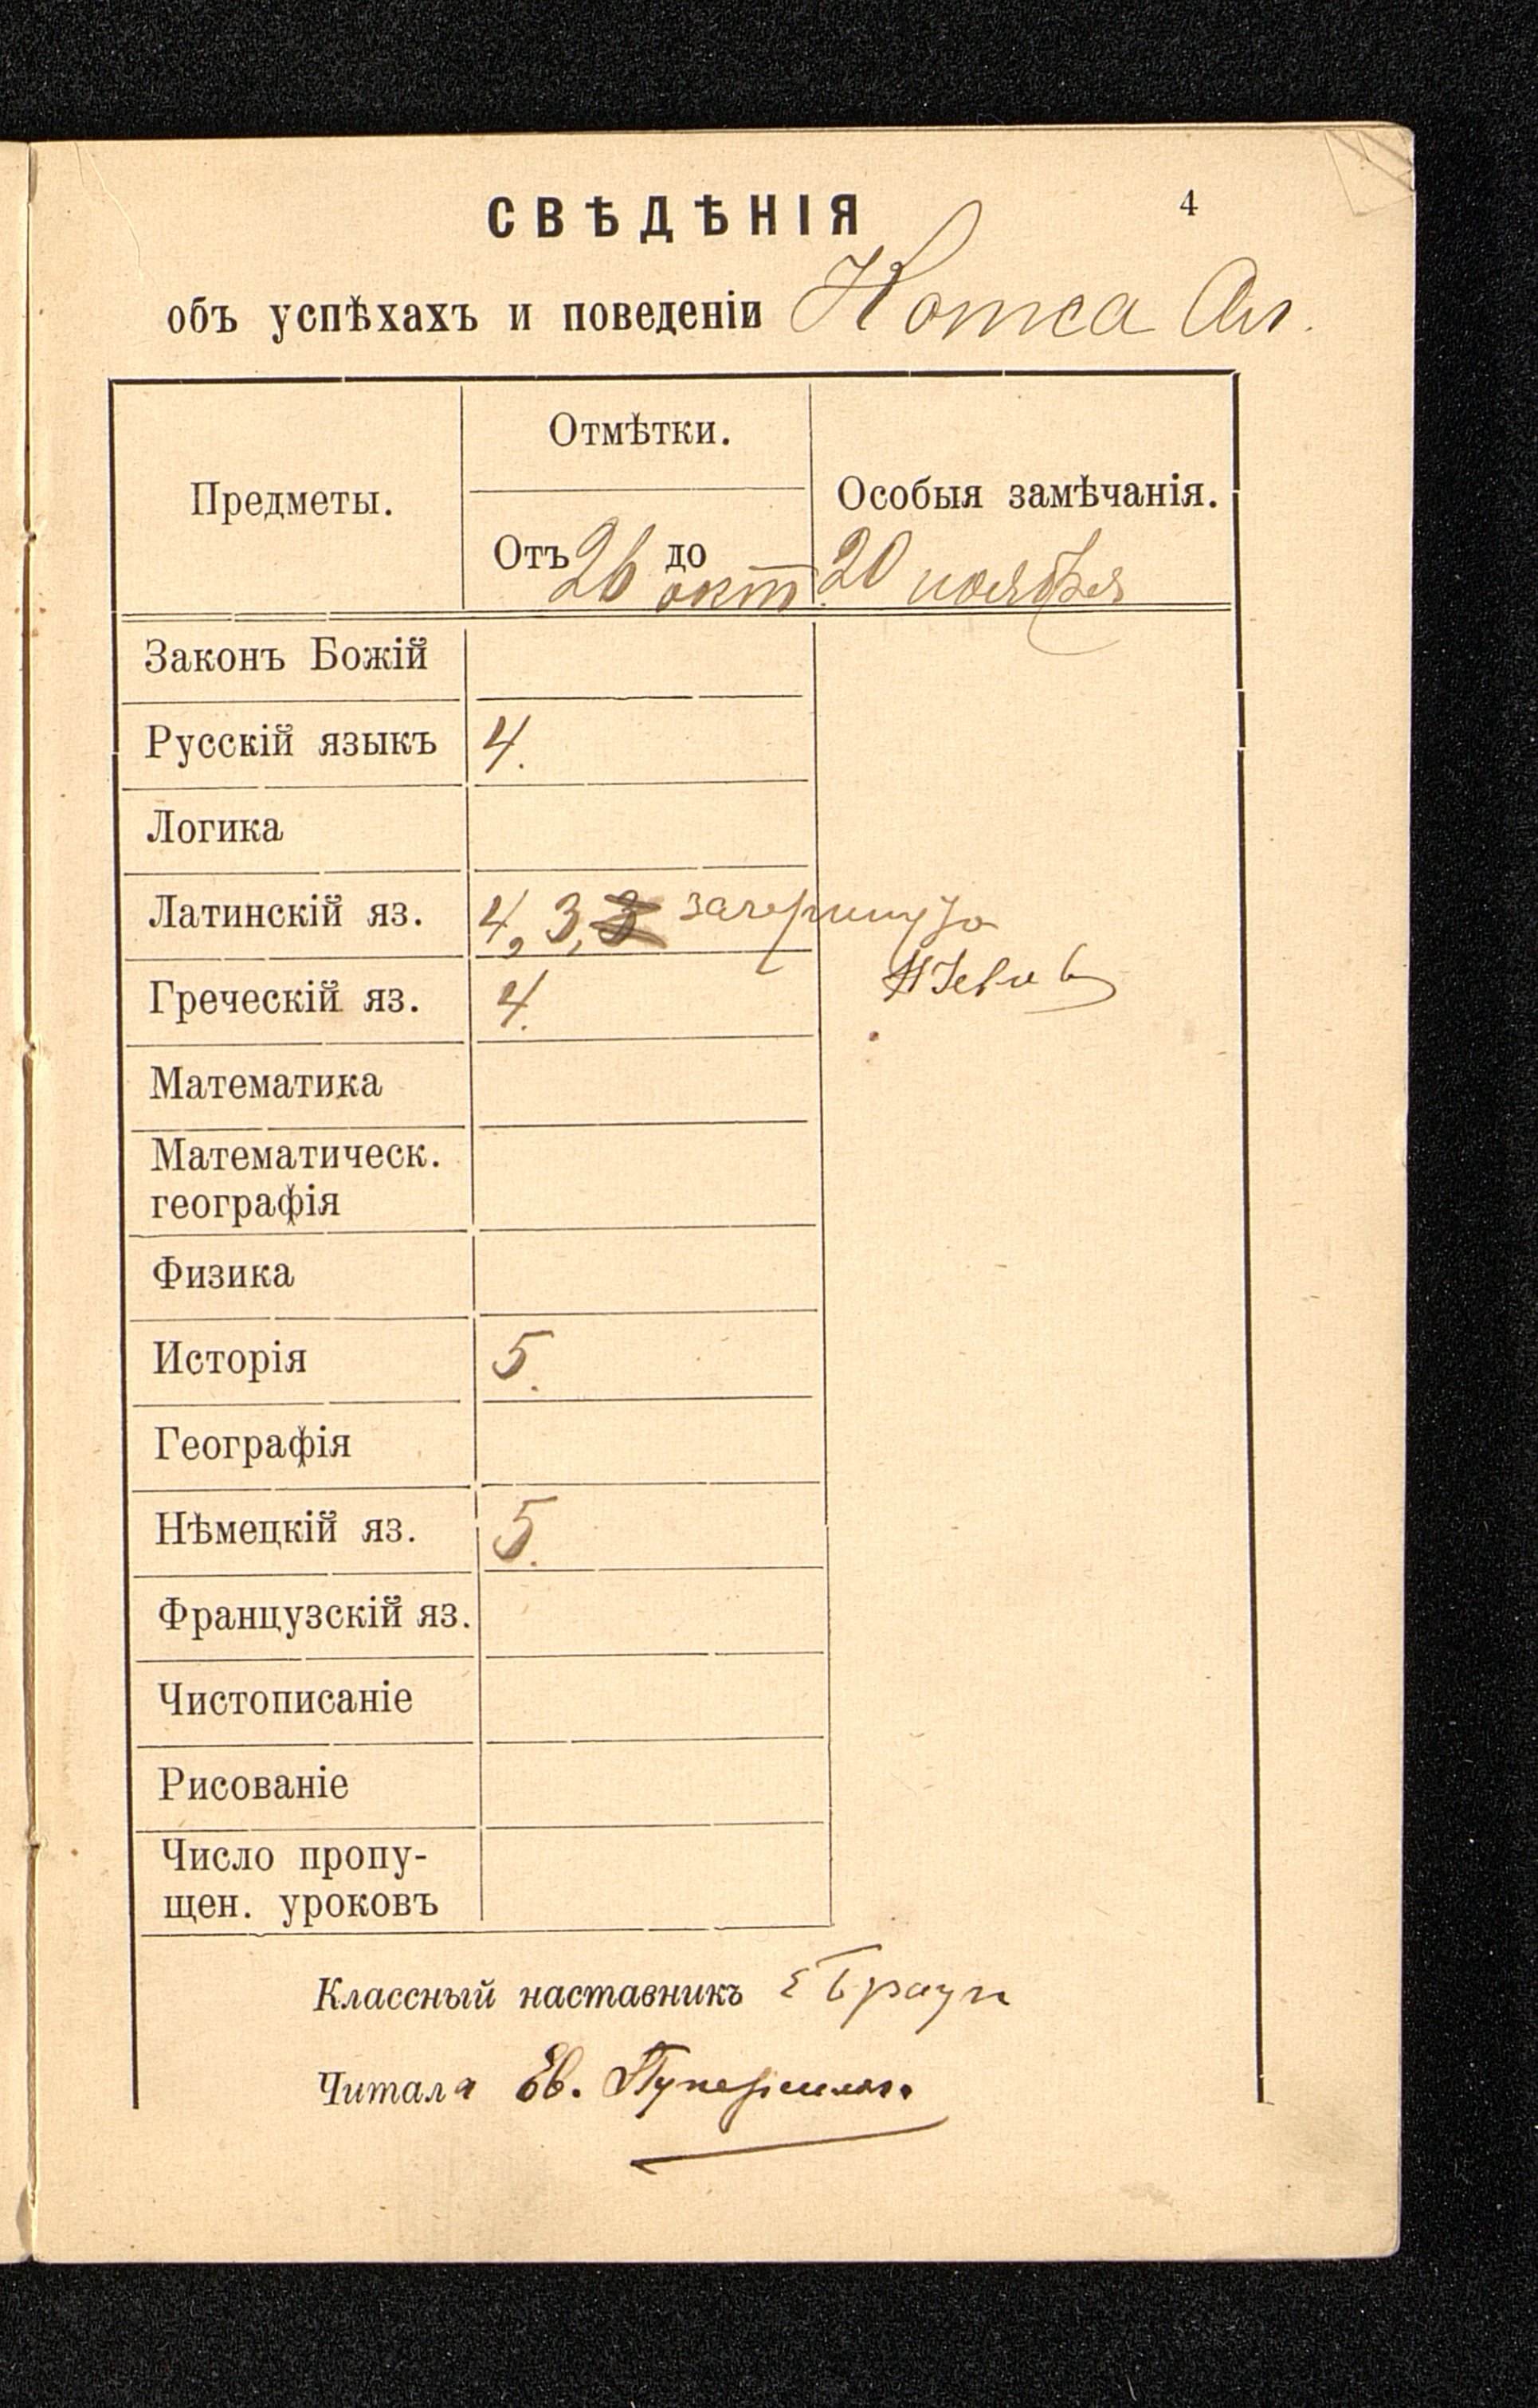 СВѢДѢНІЯ
4
объ успѣхахъ и поведеніи Котса Ал.
Предметы.
Отмѣтки.
Отъ 26 до окт. 20 ноября
Особыя замѣчанія.
Законъ Божій
Русскій языкъ 4.
Логика
Латинскій яз. 4, 3, 3 зачеркнуто
Греческій яз. 4.
Математика
Математическ.
географія
Физика
Исторія 5.
Географія
Нѣмецкій яз. 5.
Французскій яз.
Чистописаніе
Рисованіе
Число пропу-
щен. уроковъ
Классный наставникъ Е Браун
Читала Ев.